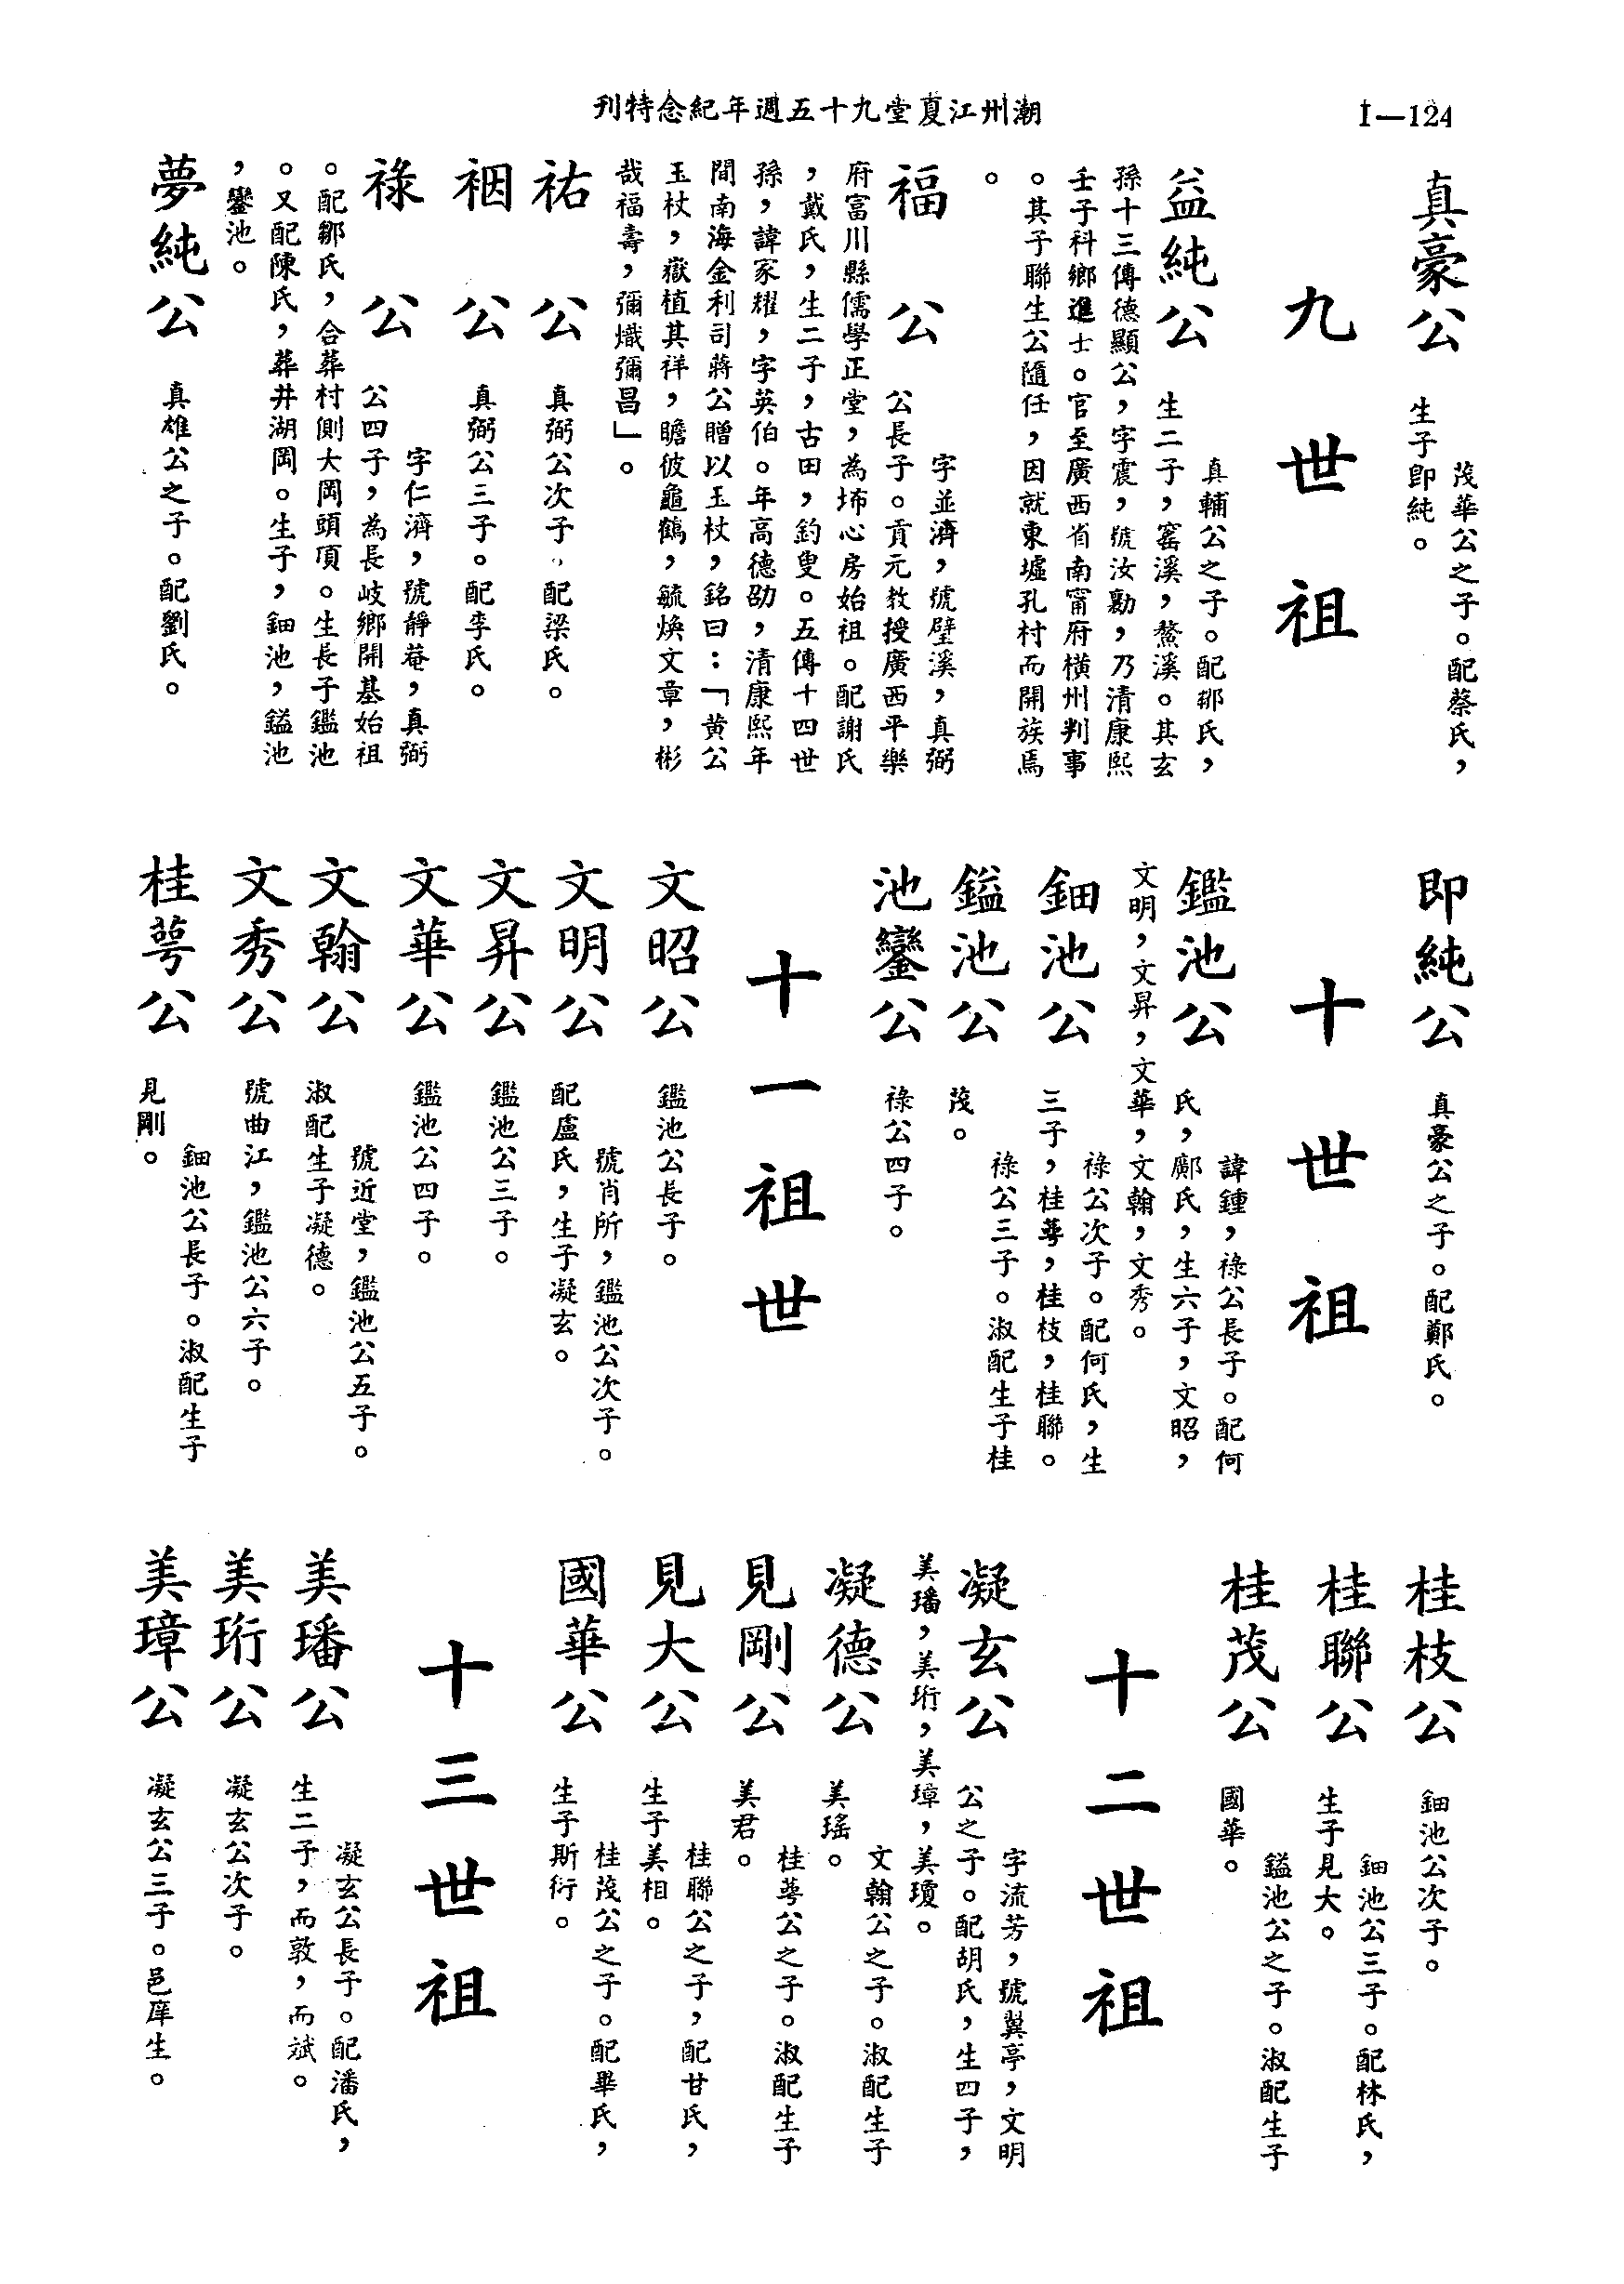 潮州江夏堂九十五週年紀念特刊
I—124
真豪公
茂華公之子。配蔡氏，
生子即純。
九世祖
益純公
真輔公之子。配那氏，
生二子，窰溪，鰲溪。其玄
孫十三傳德顯公，字震，號汝勷，乃清康熙
壬子科鄉進士。官至廣西省南甯府橫州判事
。其子聯生公隨任，因就東墟孔村而開族焉
。
福公
字並濟，號璧溪，真弼
公長子。貢元教授廣西平樂
府富川縣儒學正堂，為㘵心房始祖。配謝氏
，戴氏，生二子，古田，釣叟。五傳十四世
孫，諱家耀，字英伯。年高德劭，清康熙年
間南海金利司蔣公贈以玉杖，銘曰：「黄公
玉杖，嶽植其祥，瞻彼龜鶴，毓煥文章，彬
哉福壽，彌熾彌昌」。
祐公
真弼公次子，配梁氏。
裀公
真弼公三子。配李氏。
祿公
字仁濟，號靜菴，真弼
公四子，為長岐鄉開基始祖
。配鄒氏，合葬村側大岡頭頂。生長子鑑池
。又配陳氏，葬井湖岡。生子，鈿池，鎰池
，鑾池。
夢純公
真雄公之子。配劉氏。
即純公
真豪公之子。配鄭氏。
十世祖
鑑池公
諱鍾，祿公長子。配何
氏，鄺氏，生六子，文昭，
文明，文昇，文華，文翰，文秀。
鈿池公
祿公次子。配何氏，生
三子，桂萼，桂枝，桂聯。
鎰池公
祿公三子。淑配生子桂
茂。
池鑾公
祿公四子。
十一祖世
文昭公
鑑池公長子。
文明公
號肖所，鑑池公次子。
配盧氏，生子凝玄。
文昇公
鑑池公三子。
文華公
鑑池公四子。
文翰公
號近堂，鑑池公五子。
淑配生子凝德。
文秀公
號曲江，鑑池公六子。
桂萼公
鈿池公長子。淑配生子
見剛。
桂枝公
鈿池公次子。
桂聯公
鈿池公三子。配林氏，
生子見大。
桂茂公
鎰池公之子。淑配生子
國華。
十二世祖
凝玄公
字流芳，號翼亭，文明
公之子。配胡氏，生四子，
美璠，美珩，美璋，美瓊。
凝德公
文翰公之子。淑配生子
美瑤。
見剛公
桂萼公之子。淑配生子
美君。
見大公
桂聯公之子，配甘氏，
生子美相。
國華公
桂茂公之子。配畢氏，
生子斯衍。
十三世祖
美璠公
凝玄公長子。配潘氏，
生二子，而敦，而斌。
美珩公
凝玄公次子。
美璋公
凝玄公三子。邑庠生。